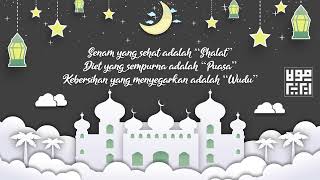 Senam yang sehat adalah "Shalat"
Diet yang sempurna adalah "Puasa"
Kebersihan yang menyegarkan adalah "Wudu"